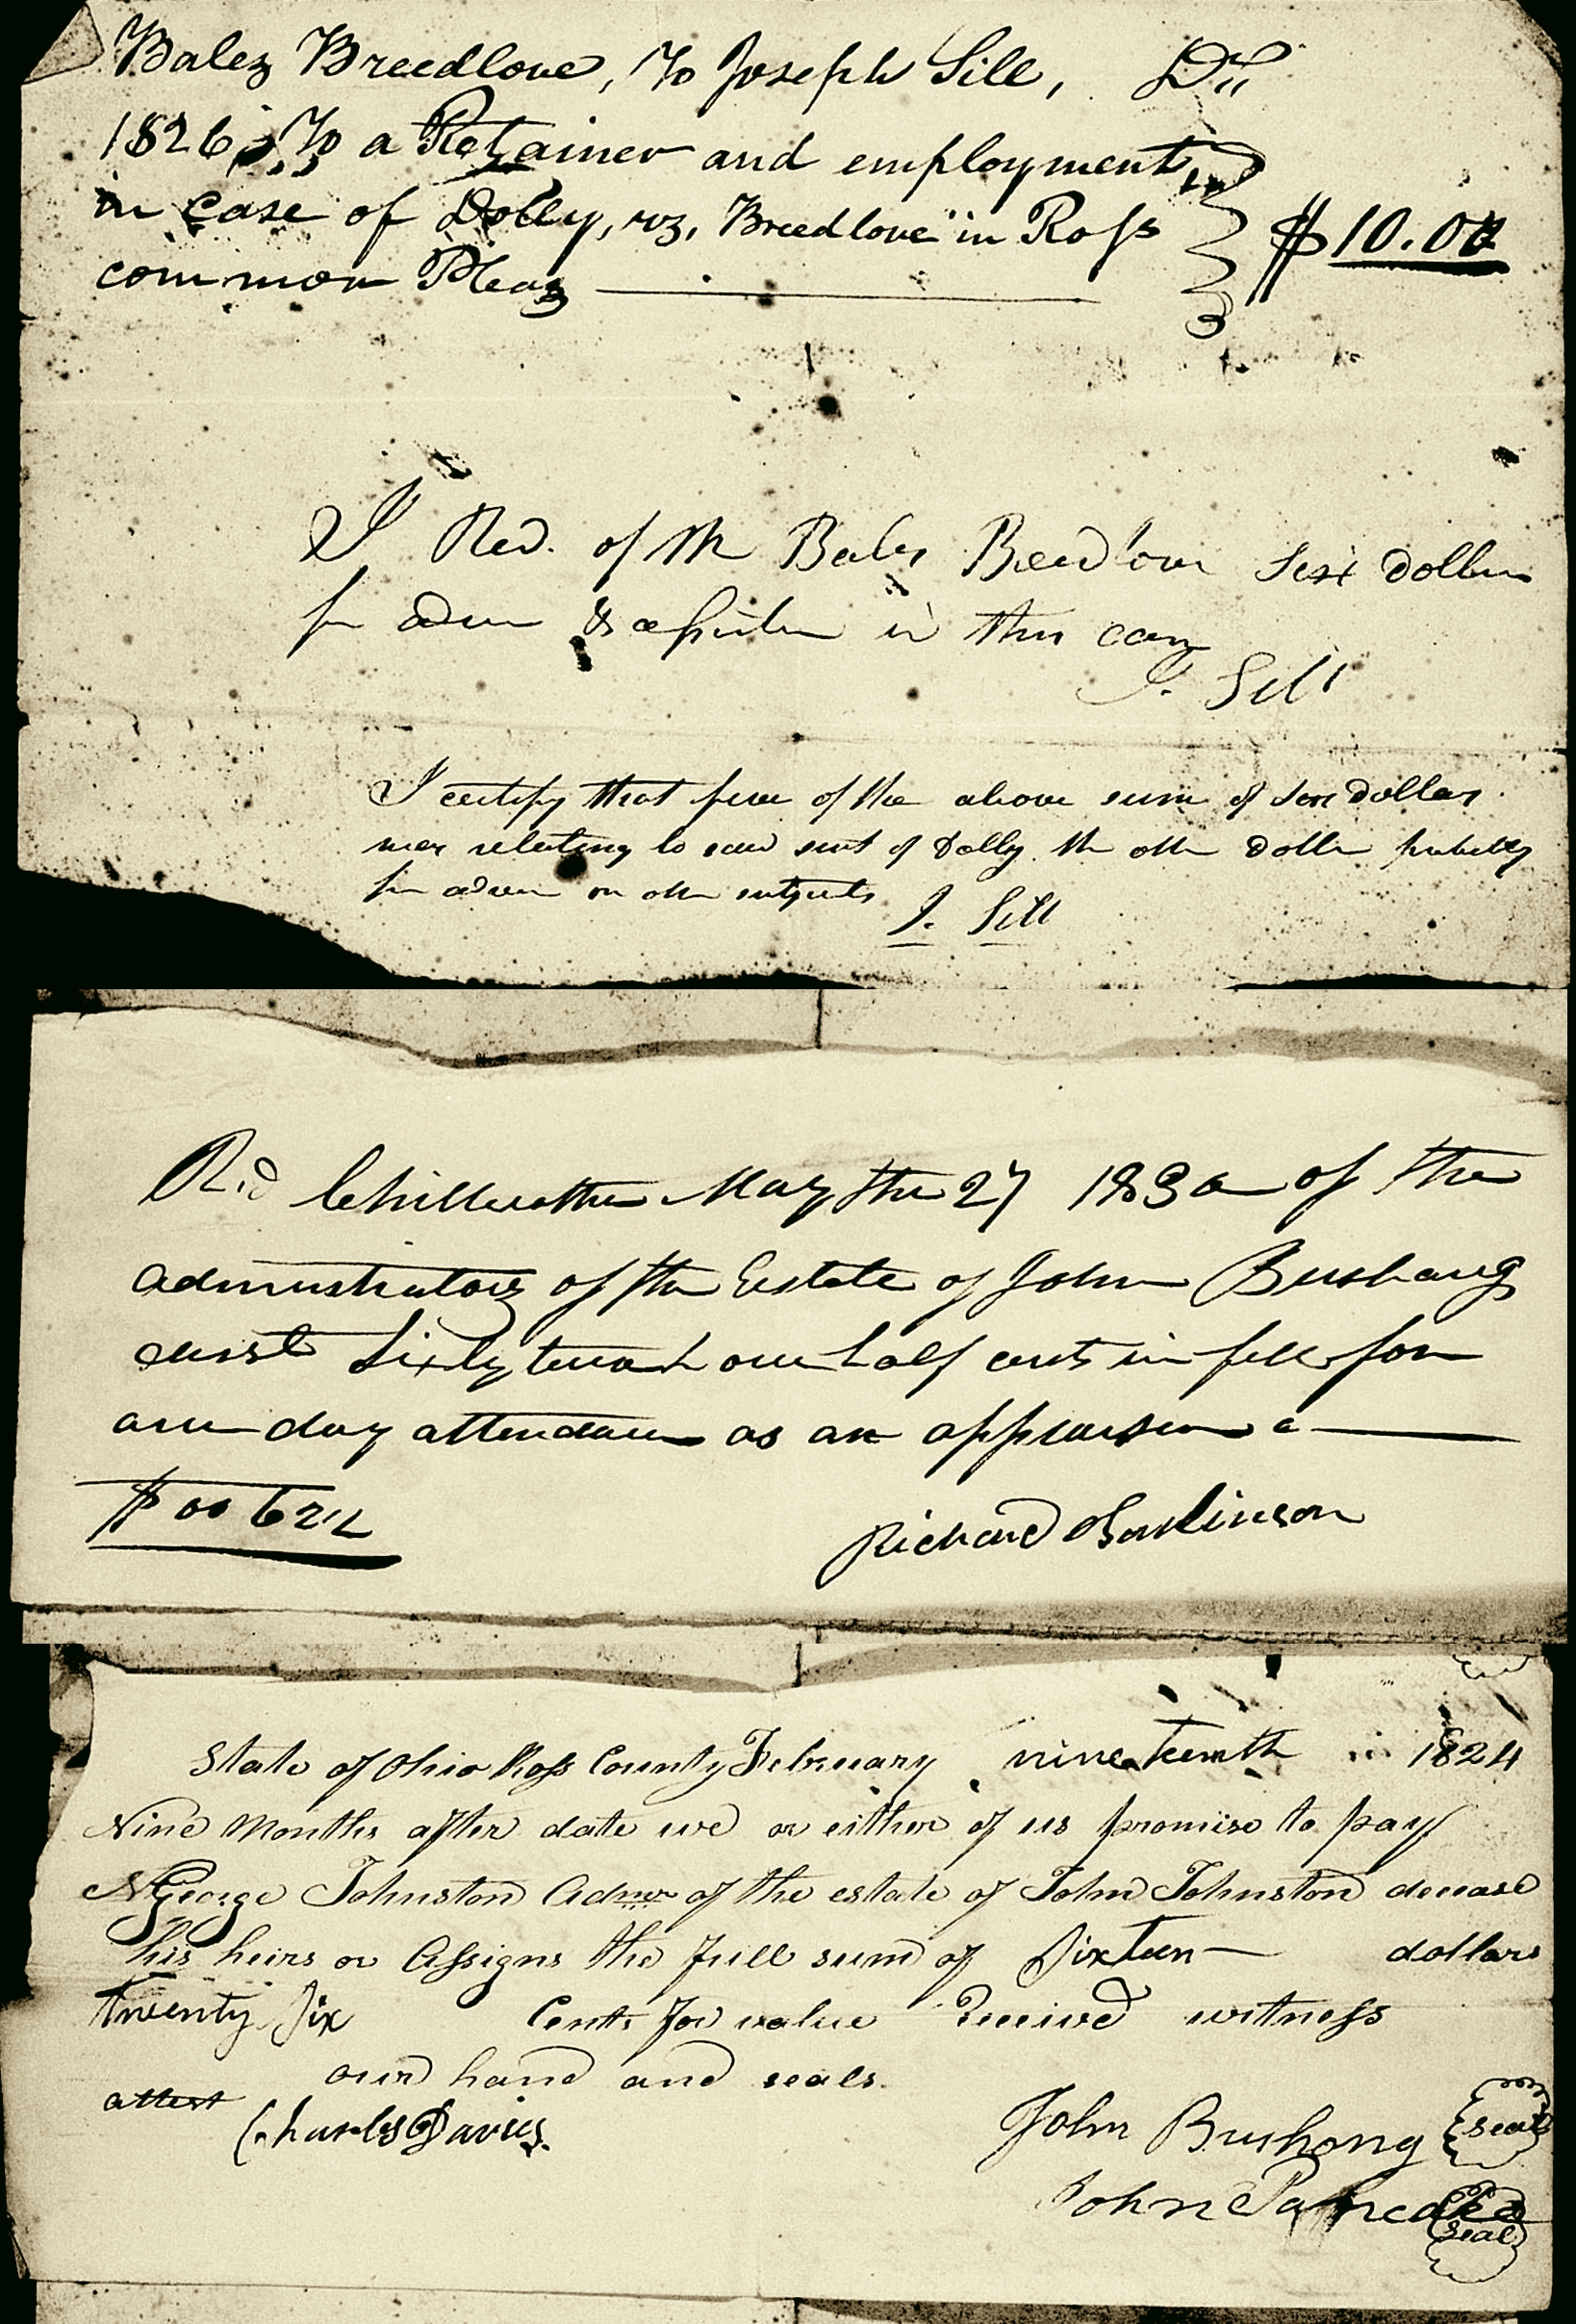 Balez Breedlove, To Joseph Sill, Dr
1826, To a Retainer and employment
in case of Dolly, vs, Breedlove in Ross
common Pleas
$10.00
I Recd. of Mr Bales Breedlove Six dollars
for advice & in this case
J. Sill
I certify that five of the above sum of six dollars
was relating to said suit of Dolly the other dollar probably
for advice on other subjects
J. Sill
Recd Chillicothe May the 27 1830 of the
administrators of the Estate of John Bushong
Sixty two & one half cents in full for
one day attendance as an appraiser
$ 00 62 1/2
Richard
State of Ohio Ross County February nineteenth in 1824
Nine Months after date we or either of us promise to pay
George Johnston Admr of the estate of John Johnston decease
his heirs or Assigns the Full sum of Sixteen dollars
Twenty Six Cents for value Received witness
our hand and seals.
attest
Charles Davis
John Bushong seal
John Pancake seal